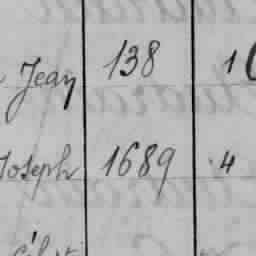 Jean 138 1
Joseph 1689 4